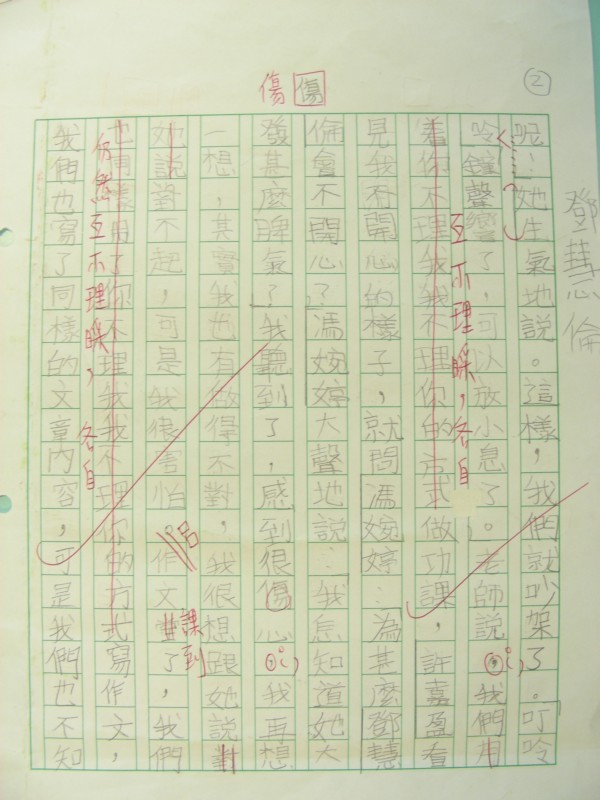 ②
傷 傷
鄧慧倫
呢！她生氣地說。這樣，我們就吵架了。叮呤
呤鐘聲響了，可以放小息了。老師說，我們用
着你不理我我不理你的方式做功課，許嘉盈看
互不理睬，各自
見我不開心的樣子，就問馮婉婷：為甚麼鄧慧
倫會不開心？馮婉婷大聲地說：我怎知道她大
發甚麼脾氣？我聽到了，感到很傷心，我再想
一想，其實我也有做得不對，我很想跟她說對
她說對不起，可是我很害怕作文 了，我們
課到
也 用了你不理我我不理你的方式寫作文，
仍然互不理睬，各自
我們也寫了同樣的文章內容，可是我們也不知